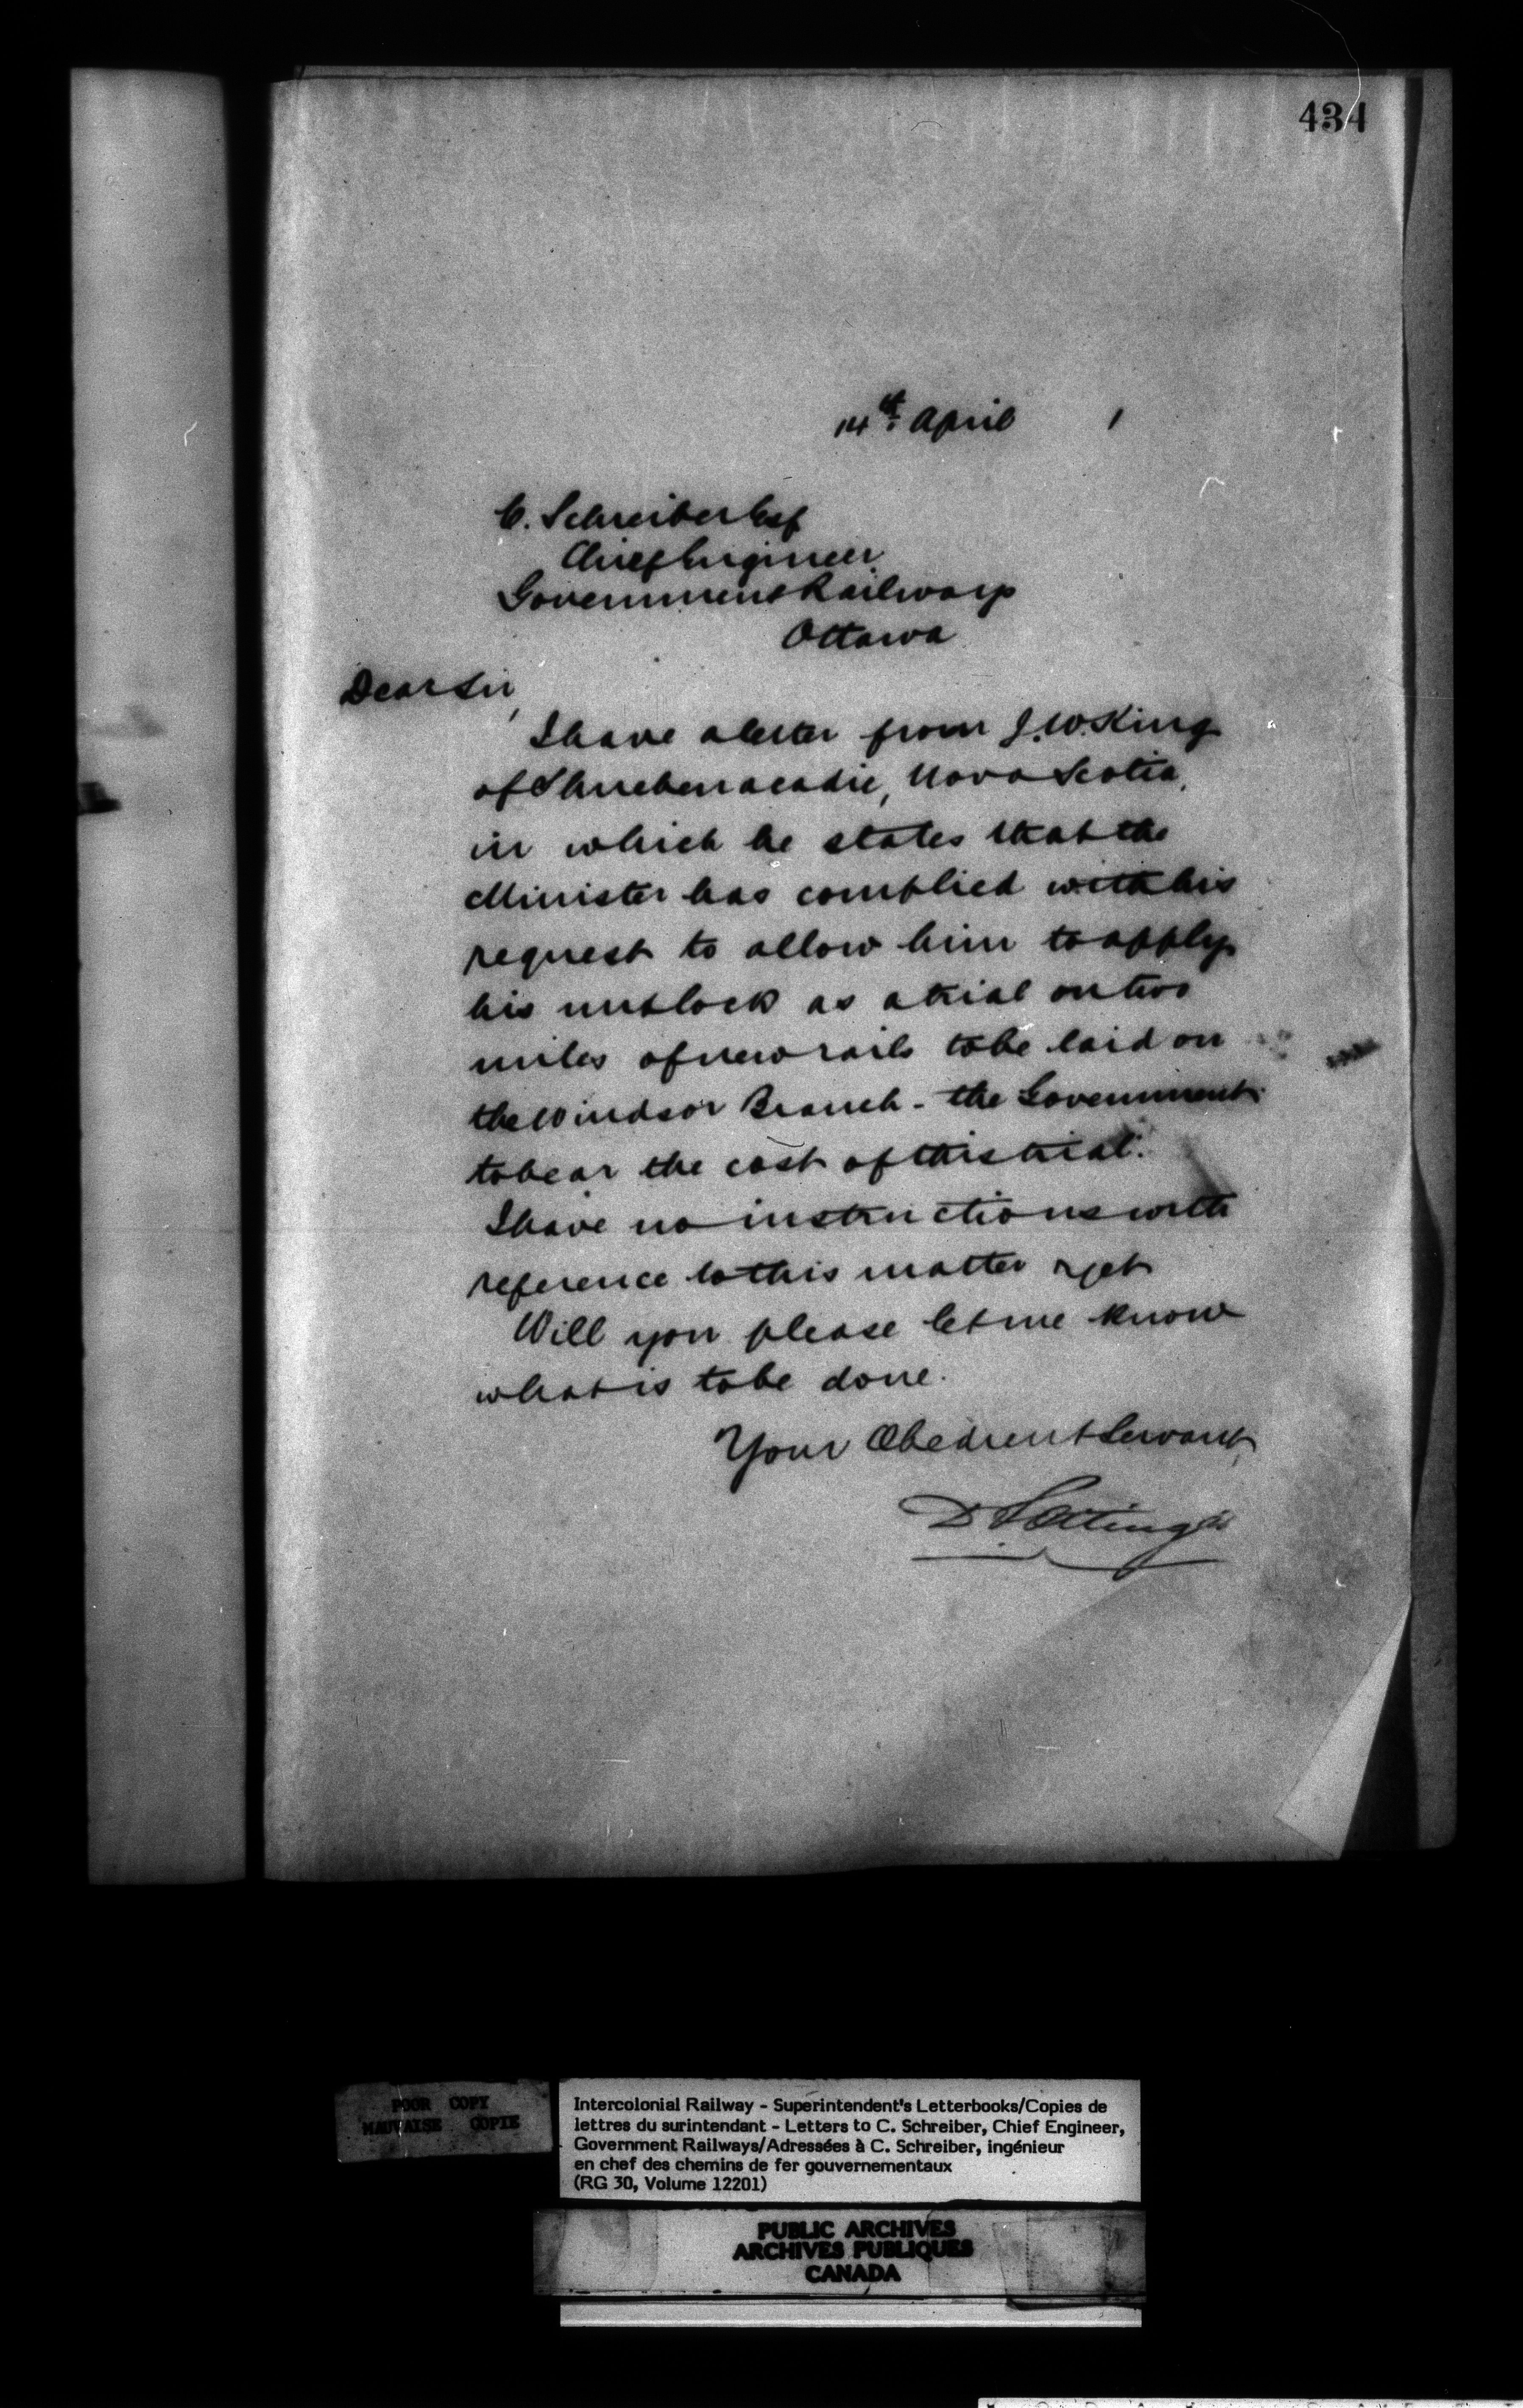 434
14th April 1
C. Schreiber Esq
Chief Engineer
Government Railways
Ottawa
Dear Sir,
I have a letter from J. W. King
of Shubenacadie, Nova Scotia,
in which he states that the
Minister has complied with his
request to allow him to apply
his nutlock as a trial on two
miles of new rails to be laid on
the Windsor Branch - the Government
to bear the cost of this trial.
I have no instructions with
reference to this matter yet
Will you please let me know
what is to be done.
Your Obedient Servant,
D Pottinger
POOR COPY
MAUVAISE COPIE
Intercolonial Railway - Superintendent's Letterbooks/Copies de
lettres du surintendant - Letters to C. Schreiber, Chief Engineer,
Government Railways/Adressées à C. Schreiber, ingénieur
en chef des chemins de fer gouvernementaux
(RG 30, Volume 12201)
PUBLIC ARCHIVES
ARCHIVES PUBLIQUES
CANADA